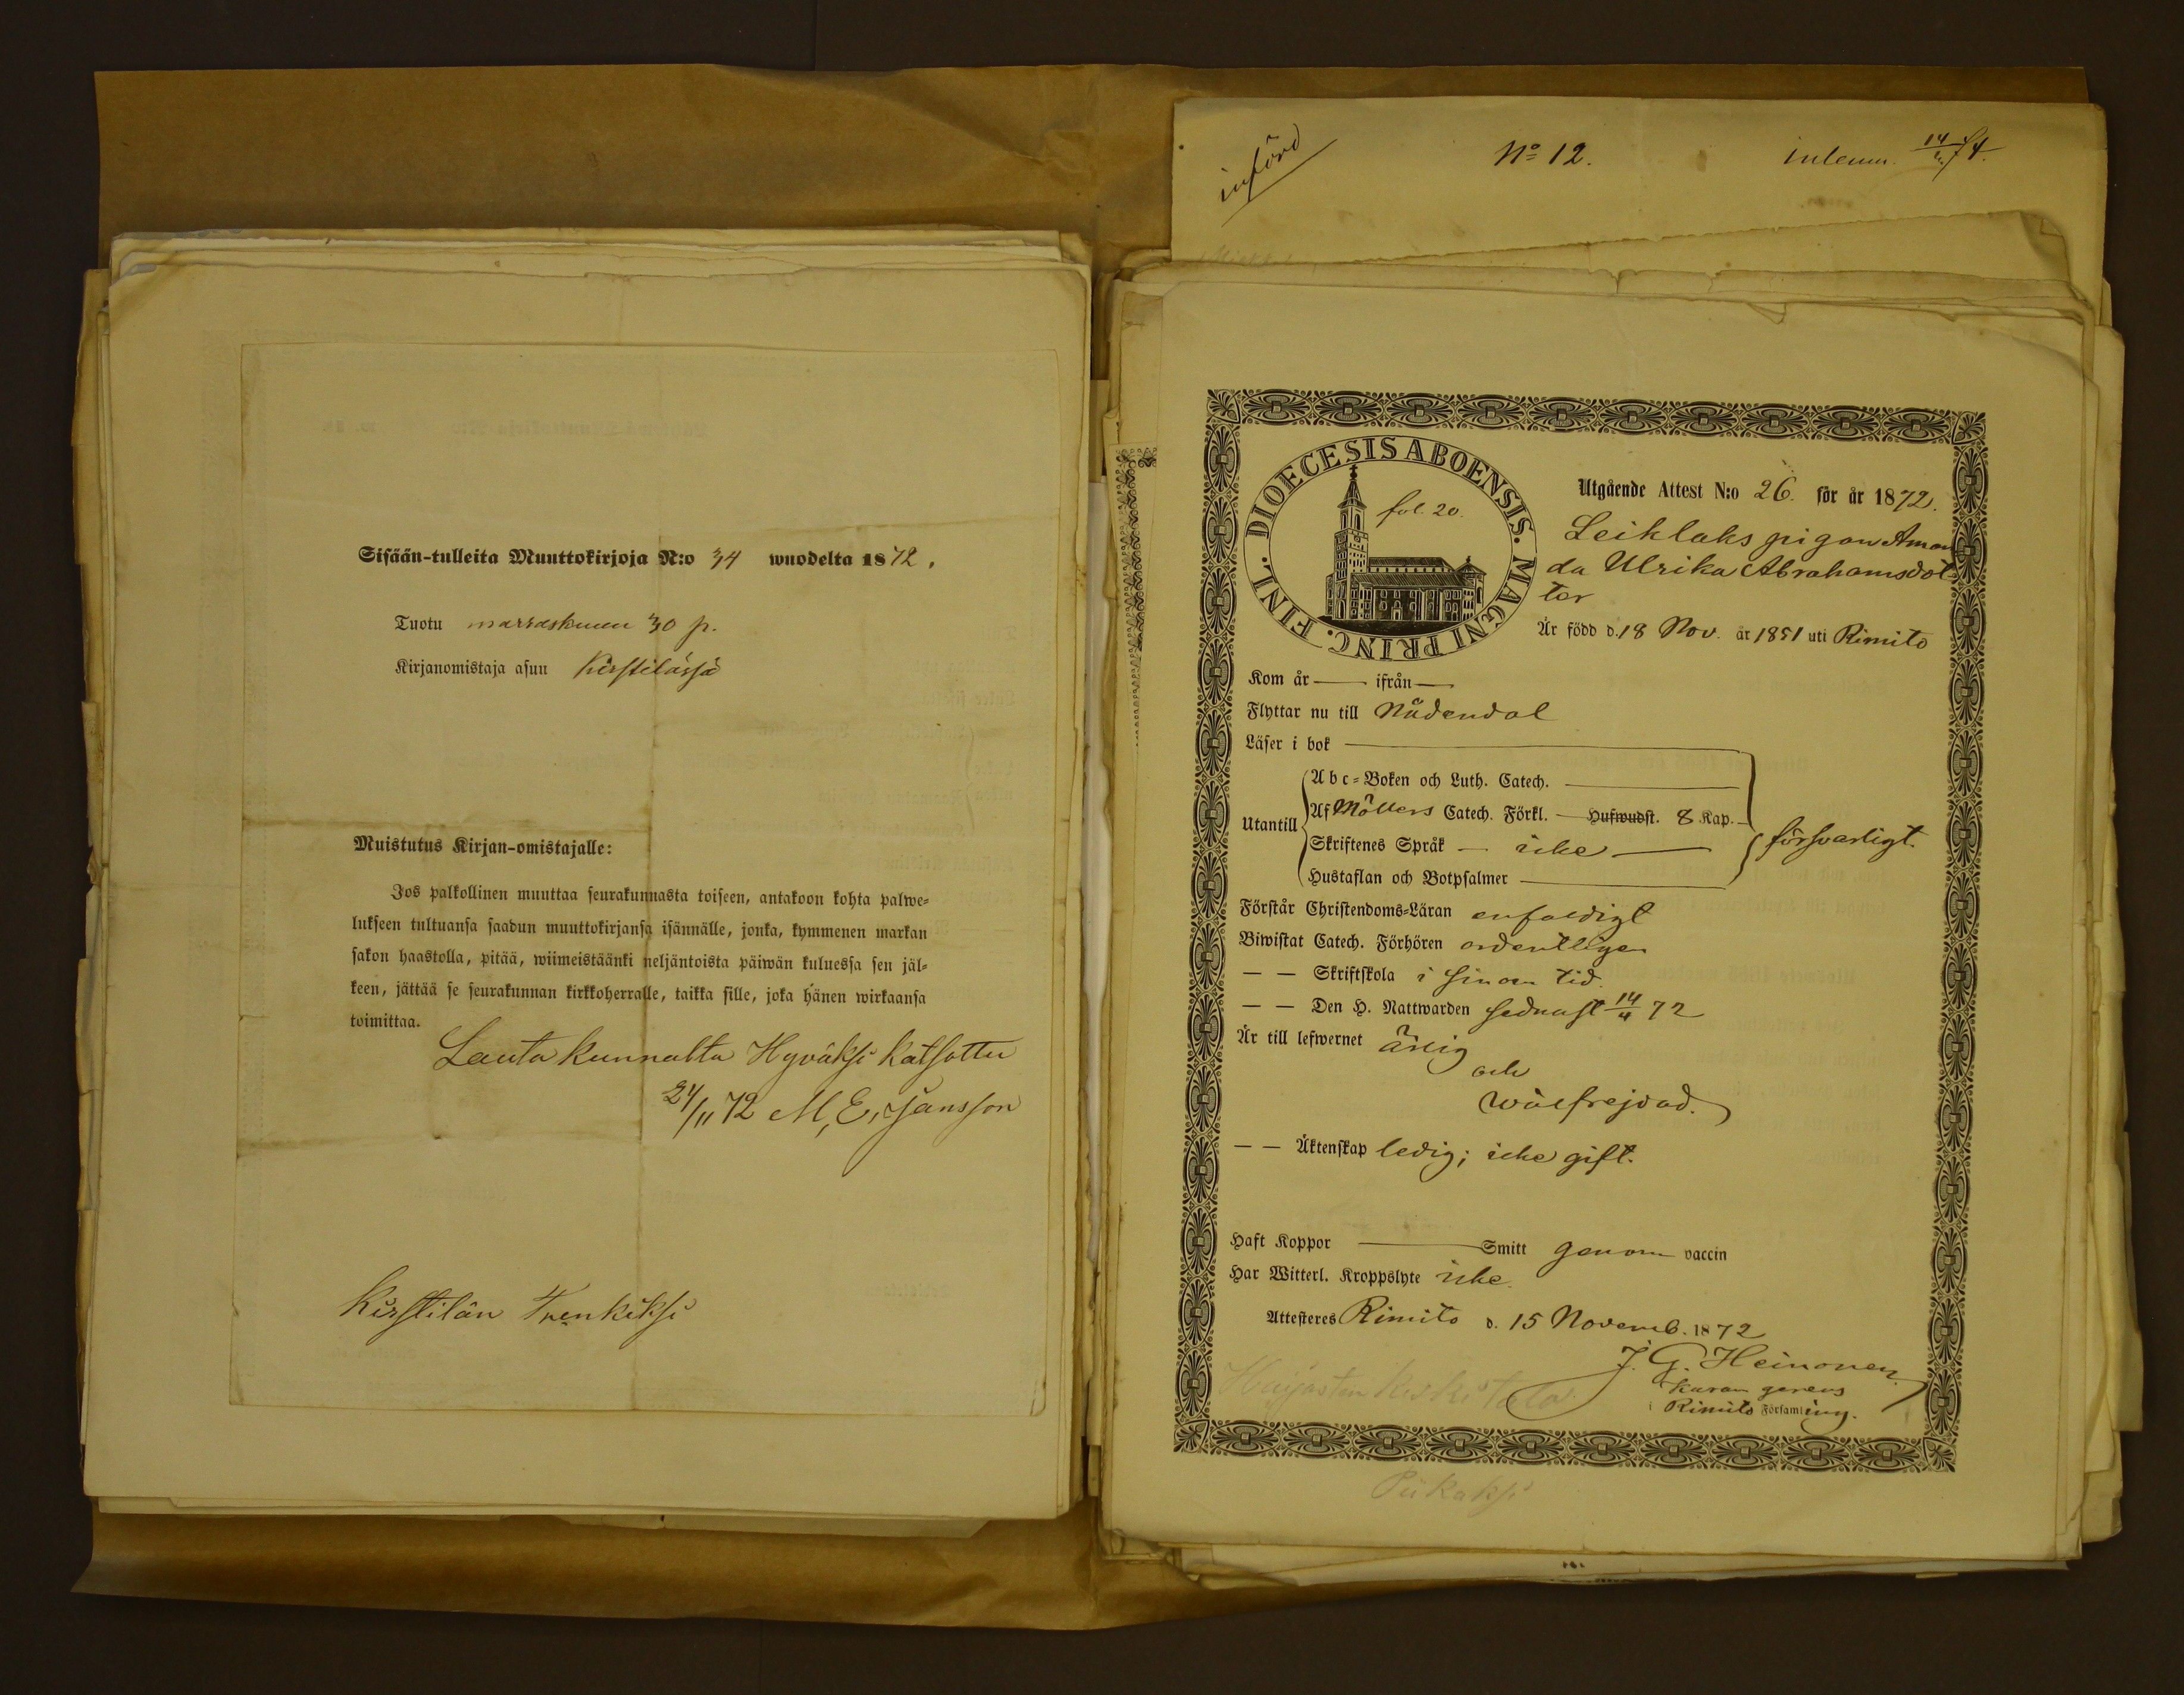 Sisään-tulleita Muuttokirjoja N:o 34 wuodelta 1872.
Tuotu marraskuun 30 p.
Kirjanomistaja asuu Kirstilässä
Muistutus Kirjan-omistajalle:
Jos palkollinen muuttaa seurakunnasta toiseen, antakoon kohta palwe=
lukseen tultuansa saadun muuttokirjansa isännälle, jonka, kymmenen markan
sakon haastolla, pitää, wiimeistäänki neljäntoista päiwän kuluessa sen jäl=
keen, jättää se seurakunnan kirkkoherralle, taikka sille, joka hänen wirkaansa
toimittaa.
Lautakunnalta Hyväksi katsottu
24/11 72 M. E. Jansson
Kirstilän
införd
No 12.
DIOECESIS ABOENSIS. MAGNI PRINC. FINL.
fol. 20.
Utgående Attest N:o 26. för år 1872.
Leiklaks pigan Aman
da Ulrika Abrahamsdot
ter
Är född d. 18 Nov. år 1851 uti Rimito
Kom år — ifrån —
Flyttar nu till Nådendal
Läser i bok
Utantill
Abc=Boken och Luth. Catech.
Af Möllers Catech. Förkl. — Hufwudst. 8 Kap.
Skriftenes Språk — icke —
Hustaflan och Botpsalmer
försvarligt.
Förstår Christendoms=Läran enfaldigt
Biwistat Catech. Förhören ordentligen
— — Skriftskola i sinom tid.
— — Den H. Nattwarden sednast 14/4 72
Är till lefwernet ärlig
och
wälfrejdad.
— — Äktenskap ledig; icke gift.
Haft Koppor — Smitt genom vaccin
Har Witterl. Kroppslyte icke.
Attesteres Rimito d. 15 Novemb. 1872
J. G. Heinonen
curam gerens
i Rimito Församling.
Piikaksi